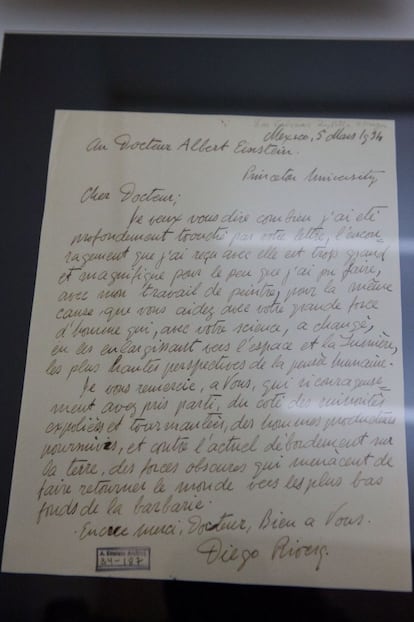 Mexico, 5 Mars 1934
Au Docteur Albert Einstein.
Princeton University
Cher Docteur;
Je veux vous dire combien j'ai été
profondement touché par votre lettre, l'encou-
ragement que j'ai reçu avec elle est trop grand
et magnifique pour le peu que j'ai pu faire,
avec mon travail de peintre, pour la même
cause que vous aidez avec votre grande force
d'homme qui, avec votre science, a changé,
en les enlargissant vers l'espace et la Lumière,
les plus hautes perspectives de la pensée humaine.
Je vous remercie, a Vous, qui si courageuse-
ment avez pris parti, du coté des minorités
expoliées et tourmantées, des hommes producteurs
poursuivis, et contre l'actuel débordement sur
la terre, des forces obscures qui menàcent de
faire retourner le monde vers les plus bas
fonds de la barbarie.
Encore merci, Docteur, Bien a Vous.
Diego Rivera.
A. Einstein Archive
34-187